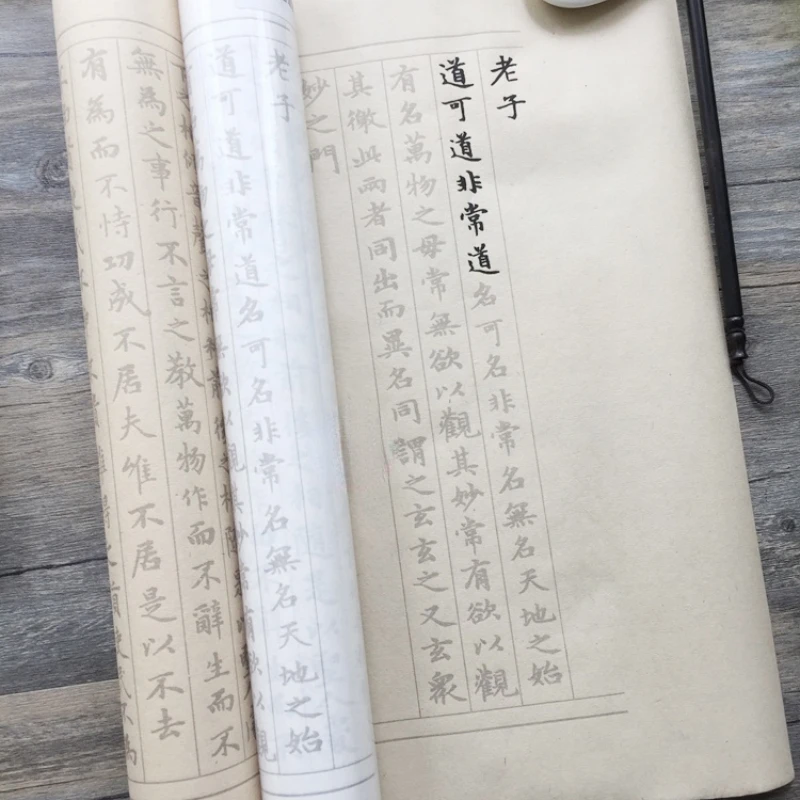 老子
道可道非常道名可名非常名無名天地之始
有名萬物之母常無欲以觀其妙常有欲以觀
其徼此兩者同出而異名同謂之玄玄之又玄衆
妙之門
老子
道可道非常道名可名非常名無名天地之始
無為之事行不言之教萬物作而不辭生而不
有為而不恃功成不居夫唯不居是以不去